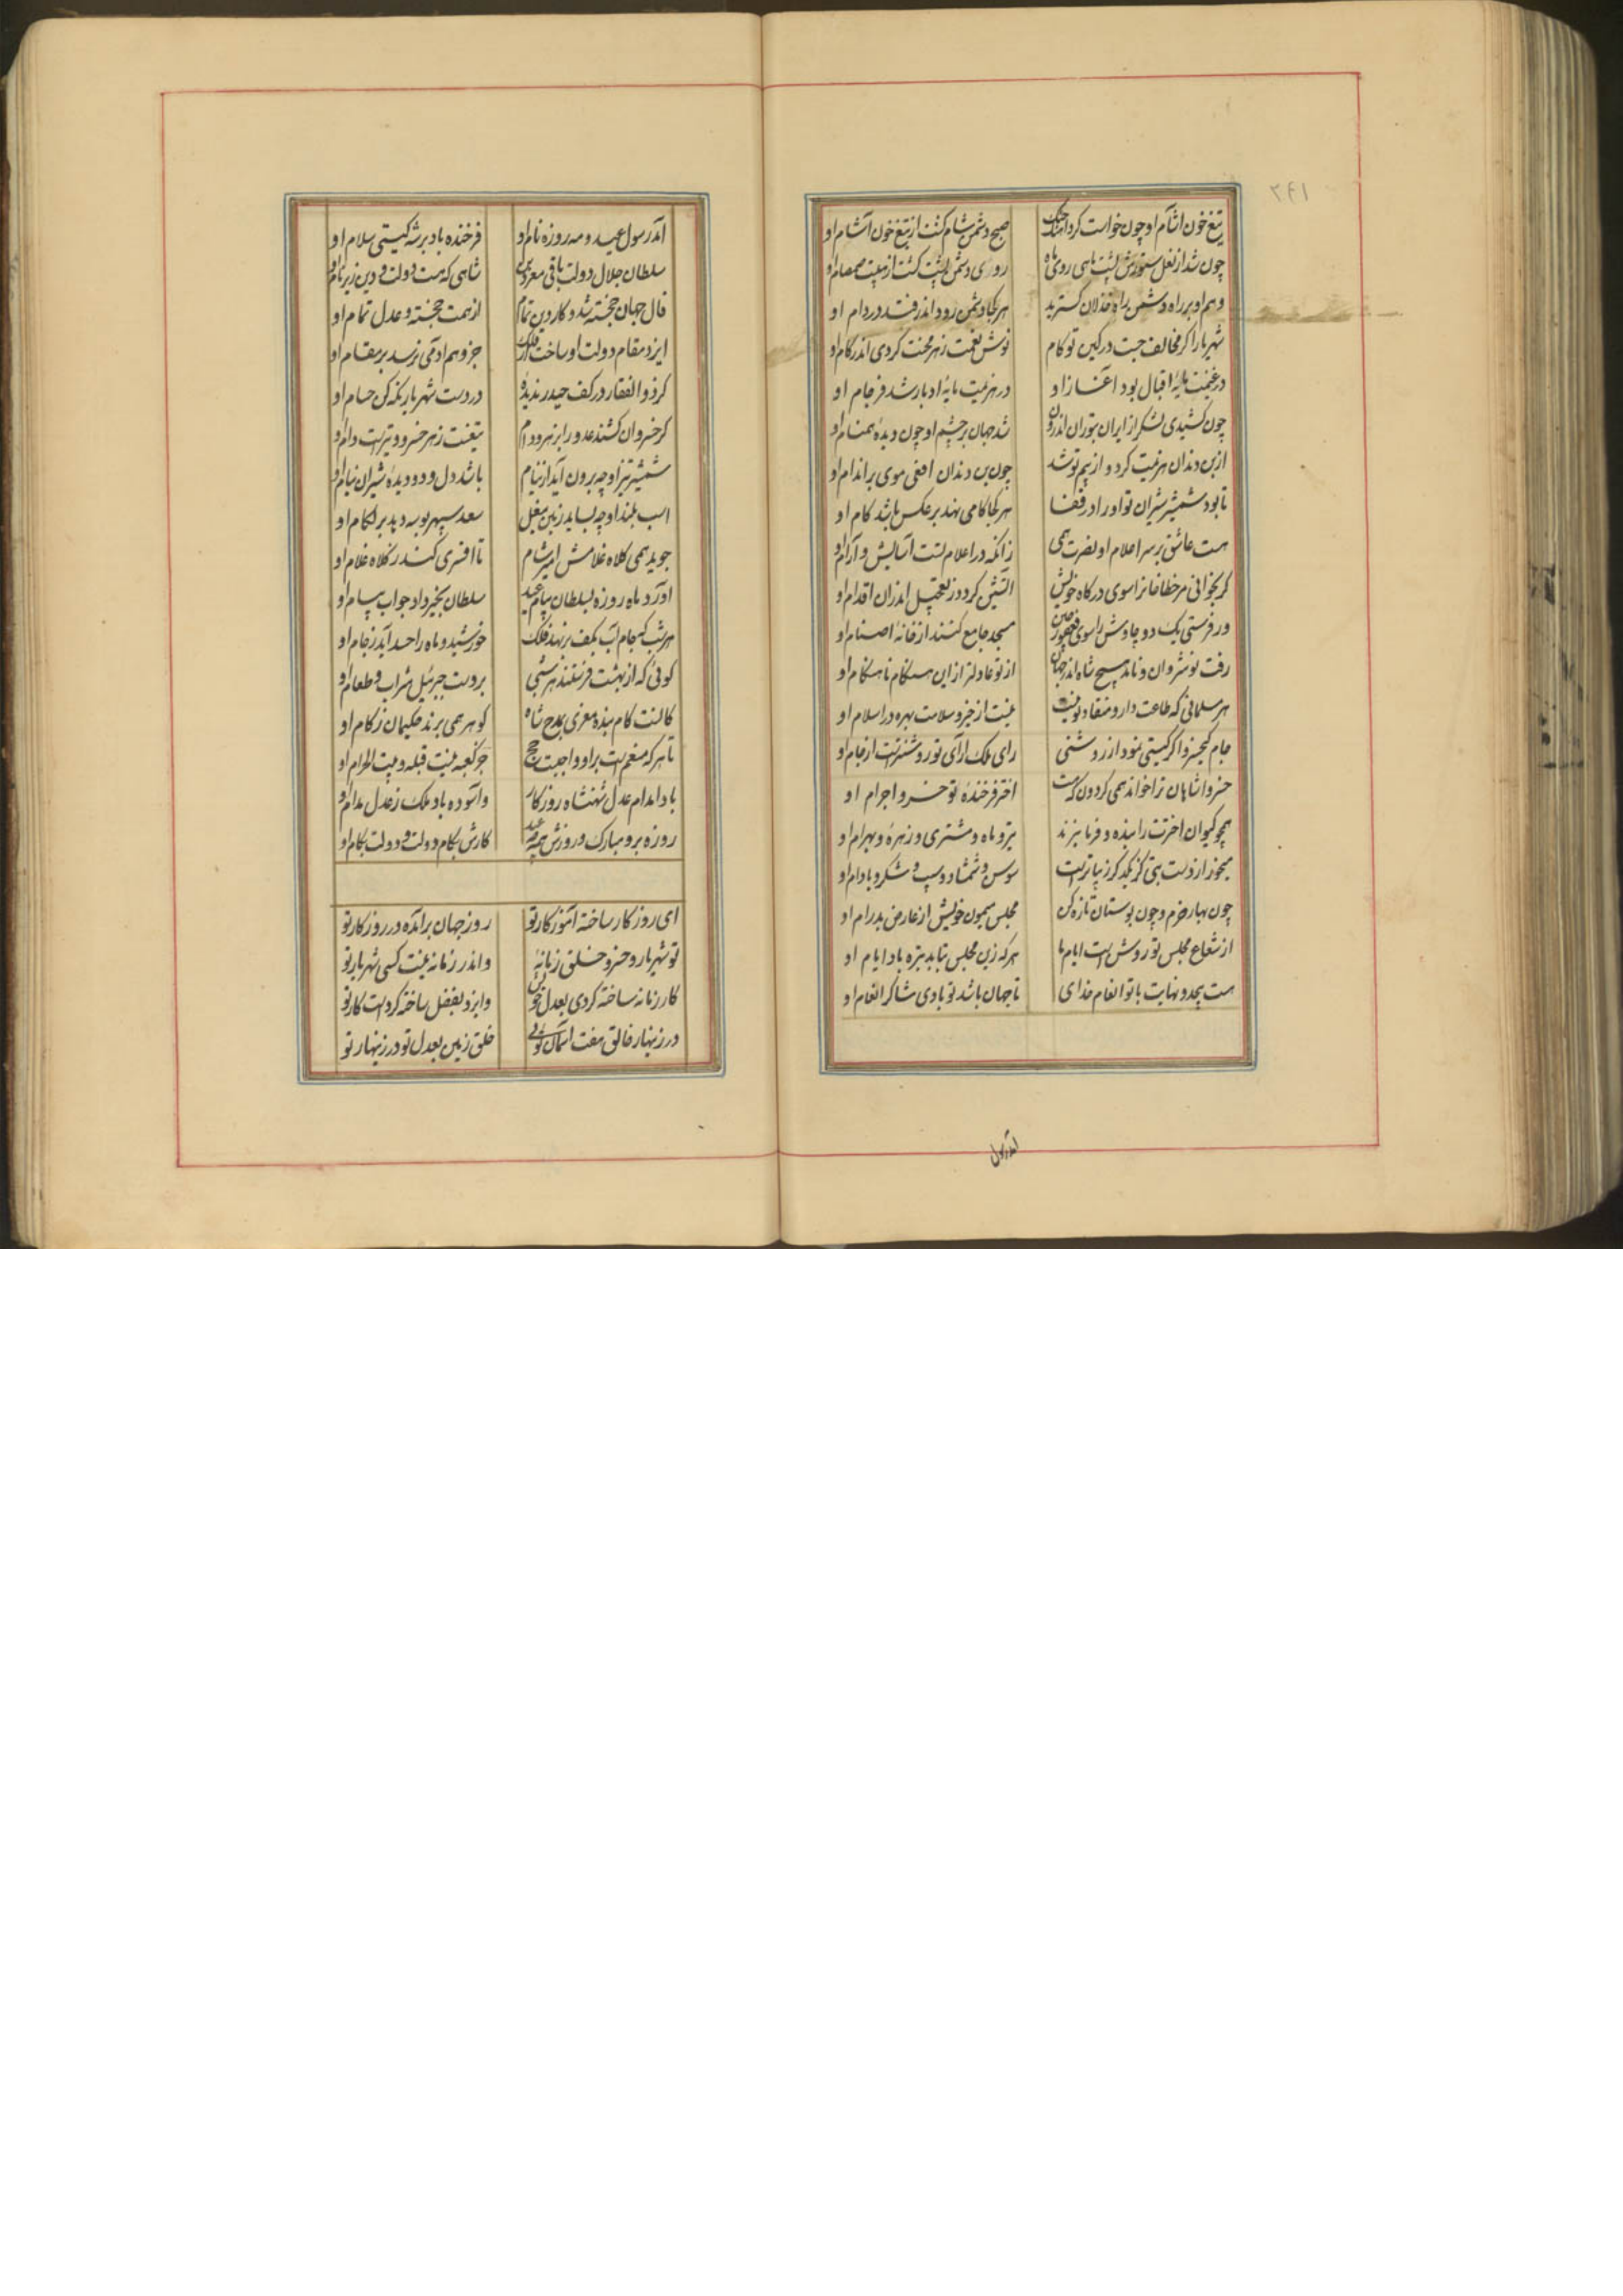 ۲۴۱
تیغ خون آشام او چون خواست کرد آهنگ جنگ صبح دشمن شام گشت از تیغ خون آشام او
چون شد از نعل ستورش پشت ماهی روی ماه روی دشمن پشت گشت از هیبت صمصام او
وهم او بر راه دشمن راه خذلان گسترید هر کجا دشمن رود اندر فتد در دام او
شهریارا گر مخالف جست در کین تو کام نوش نعمت زهر محنت کردی اندر کام او
در غنیمت مایهٔ اقبال بود آغاز او در هزیمت مایهٔ ادبار شد فرجام او
چون کشیدی لشکر از ایران بتوران اندرون شد جهان بر چشم او چون دیدهٔ همنام او
از بن دندان هزیمت کرد و از بیم تو شد چون بن دندان افعی موی بر اندام او
تا بود شمشیر شیران تو او را در قفا هر کجا کامی نهد بر عکس باشد کام او
هست عاشق بر سر اعلام او نصرت همی زانکه در اعلام تست آسایش و آرام او
گر بخوانی مر خطا خانرا سوی درگاه خویش آتشین گردد ز تعجیل اندران اقدام او
ور فرستی یک دو چاوش را سوی فغفور چین مسجد جامع کنند از خانهٔ اصنام او
رفت نوشروان و نامد هیچ شاه اندر جهان از تو عادلتر ازین هنگام تا هنگام او
هر مسلمانی که طاعت دار و منقاد تو نیست نیست از خیر و سلامت بهره در اسلام او
جام کیخسرو اگر گیتی نمود از روشنی رای ملک آرای تو روشنترست از جام او
خسروا شاهان ترا خواند همی گردون که هست اختر فرخندهٔ تو خسرو اجرام او
همچو کیوان اخترت را بنده و فرمانبرند تیر و ماه و مشتری و زهره و بهرام او
میخور از دست بتی کز یکدگر زیباترست سوسن و شمشاد و سیب و شکر و بادام او
چون بهار خرم و چون بوستان تازه کن مجلس میمون خویش از عارض پدرام او
از شعاع مجلس تو روشن است ایام ما هر که زین مجلس بتابد تیره باد ایام او
هست بیحد و نهایت با تو انعام خدای تا جهان باشد تو بادی شاکر انعام او
آمد رسول
آمد رسول عید و مه روزه نام او فرخنده باد بر شه گیتی سلام او
سلطان جلال دولت باقی معز دین شاهی که هست دولت و دین زیر نام او
فال جهان خجسته شد و کار دین تمام از همت خجسته و عدل تمام او
ایزد مقام دولت او ساخت بر فلک جز وهم آدمی نرسد بر مقام او
گر ذوالفقار در کف حیدر ندیدهٔ در دست شهریار نگه کن حسام او
گر خسروان کشند عدو را بزهر و دام تیغست زهر خسرو و تیرست دام او
شمشیر تیز او چه برون آید از نیام باشد دل و دو دیدهٔ شیران نیام او
اسب بلند او چه بساید زمین بنعل سعد سپهر بوسه دهد بر لگام او
جوید همی کلاه غلامش امیر شام تا افسری کند ز کلاه غلام او
آورد ماه روزه بسلطان پیام عید سلطان بخیر داد جواب پیام او
هر شب که جام آب بکف بر نهد فلک خورشید و ماه را حسد آید ز جام او
گوئی که از بهشت فرستند هر شبی بر دست جبرئیل شراب و طعام او
کانست کام بنده معزی بمدح شاه گوهر همی برند حکیمان ز کام او
تا هر که منعم است بر او واجبست حج جز کعبه نیست قبله و بیت الحرام او
بادا مدام عدل شهنشاه روزگار وآسوده باد ملک ز عدل مدام او
روزه برو مبارک و روزش همه چو عید کارش بکام دولت و دولت بکام او
ای روزگار ساخته آموزگار تو روز جهان برآمده در روزگار تو
تو شهریار و خسرو خلق زمانهٔ واندر زمانه نیست کسی شهریار تو
کار زمانه ساخته کردی بعدل خویش وایزد بفضل ساخته کردست کار تو
در زینهار خالق هفت آسمان توئی خلق زمین بعدل تو در زینهار تو